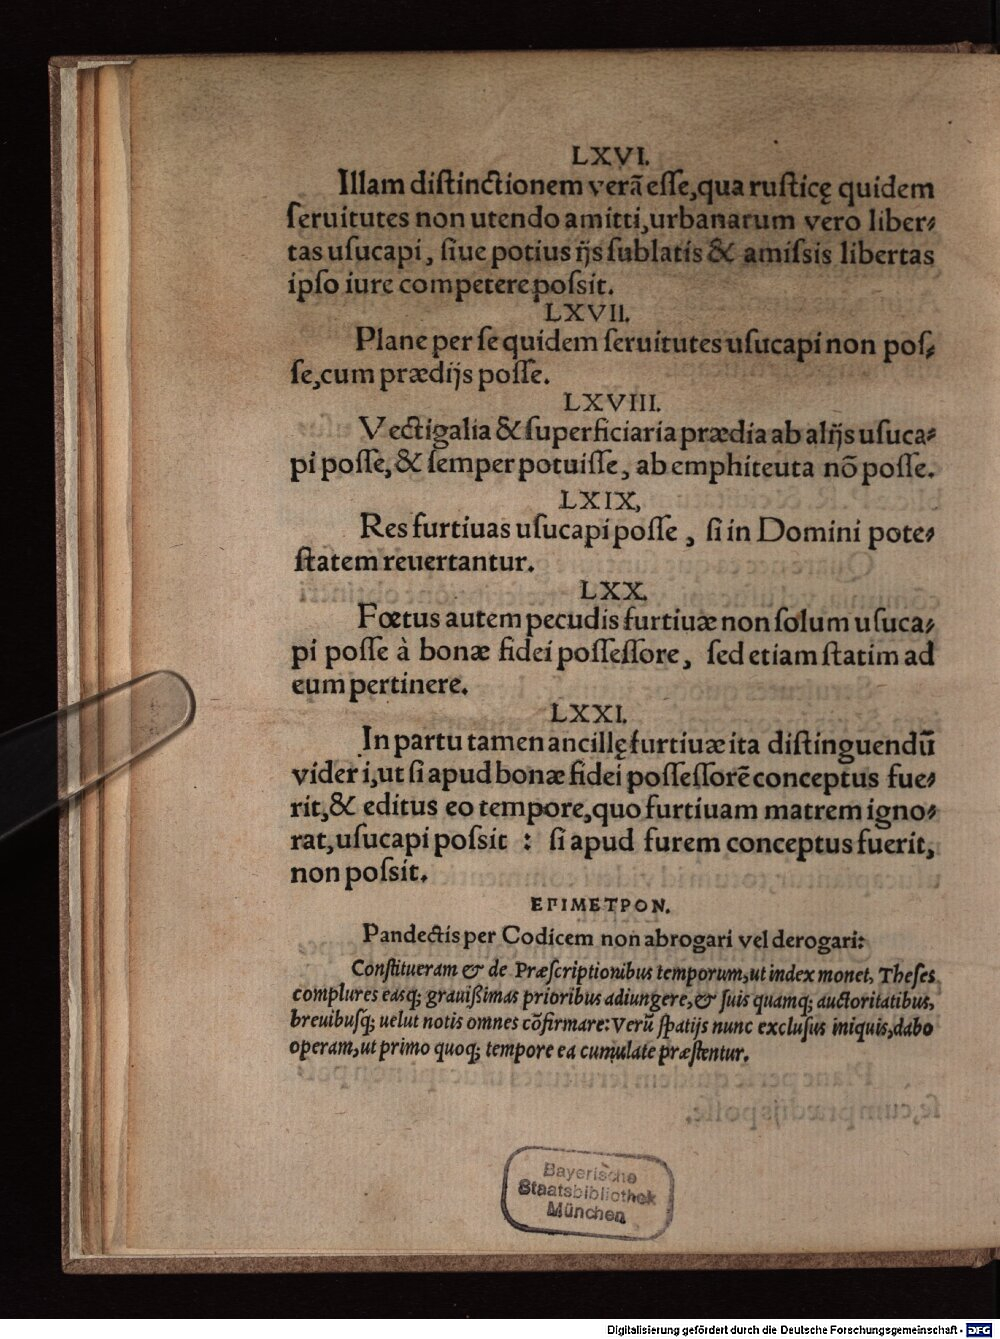 LXVI.
Illam distinctionem verã esse, qua rusticę quidem
seruitutes non utendo amitti, urbanarum vero liber-
tas usucapi, siue potius ijs sublatis & amissis libertas
ipso iure competere possit.
LXVII.
Plane per se quidem seruitutes usucapi non pos-
se, cum prædijs posse.
LXVIII.
Vectigalia & superficiaria prædia ab alijs usuca-
pi posse, & semper potuisse, ab emphiteuta nõ posse.
LXIX,
Res furtiuas usucapi posse, si in Domini pote-
statem reuertantur.
LXX.
Fœtus autem pecudis furtiuæ non solum usuca-
pi posse à bonæ fidei possessore, sed etiam statim ad
eum pertinere.
LXXI.
In partu tamen ancillę furtiuæ ita distinguendũ
videri, ut si apud bonæ fidei possessorẽ conceptus fue-
rit, & editus eo tempore, quo furtiuam matrem igno-
rat, usucapi possit : si apud furem conceptus fuerit,
non possit.
ΕΠΙΜΕΤΡΟΝ.
Pandectis per Codicem non abrogari vel derogari:
Constitueram & de Præscriptionibus temporum, ut index monet, Theses
complures easq; grauißimas prioribus adiungere, & suis quamq; auctoritatibus,
breuibusq; uelut notis omnes cõfirmare: Verũ spatijs nunc exclusus iniquis, dabo
operam, ut primo quoq; tempore ea cumulate præstentur.
Bayerische
Staatsbibliothek
München
Digitalisierung gefördert durch die Deutsche Forschungsgemeinschaft - DFG